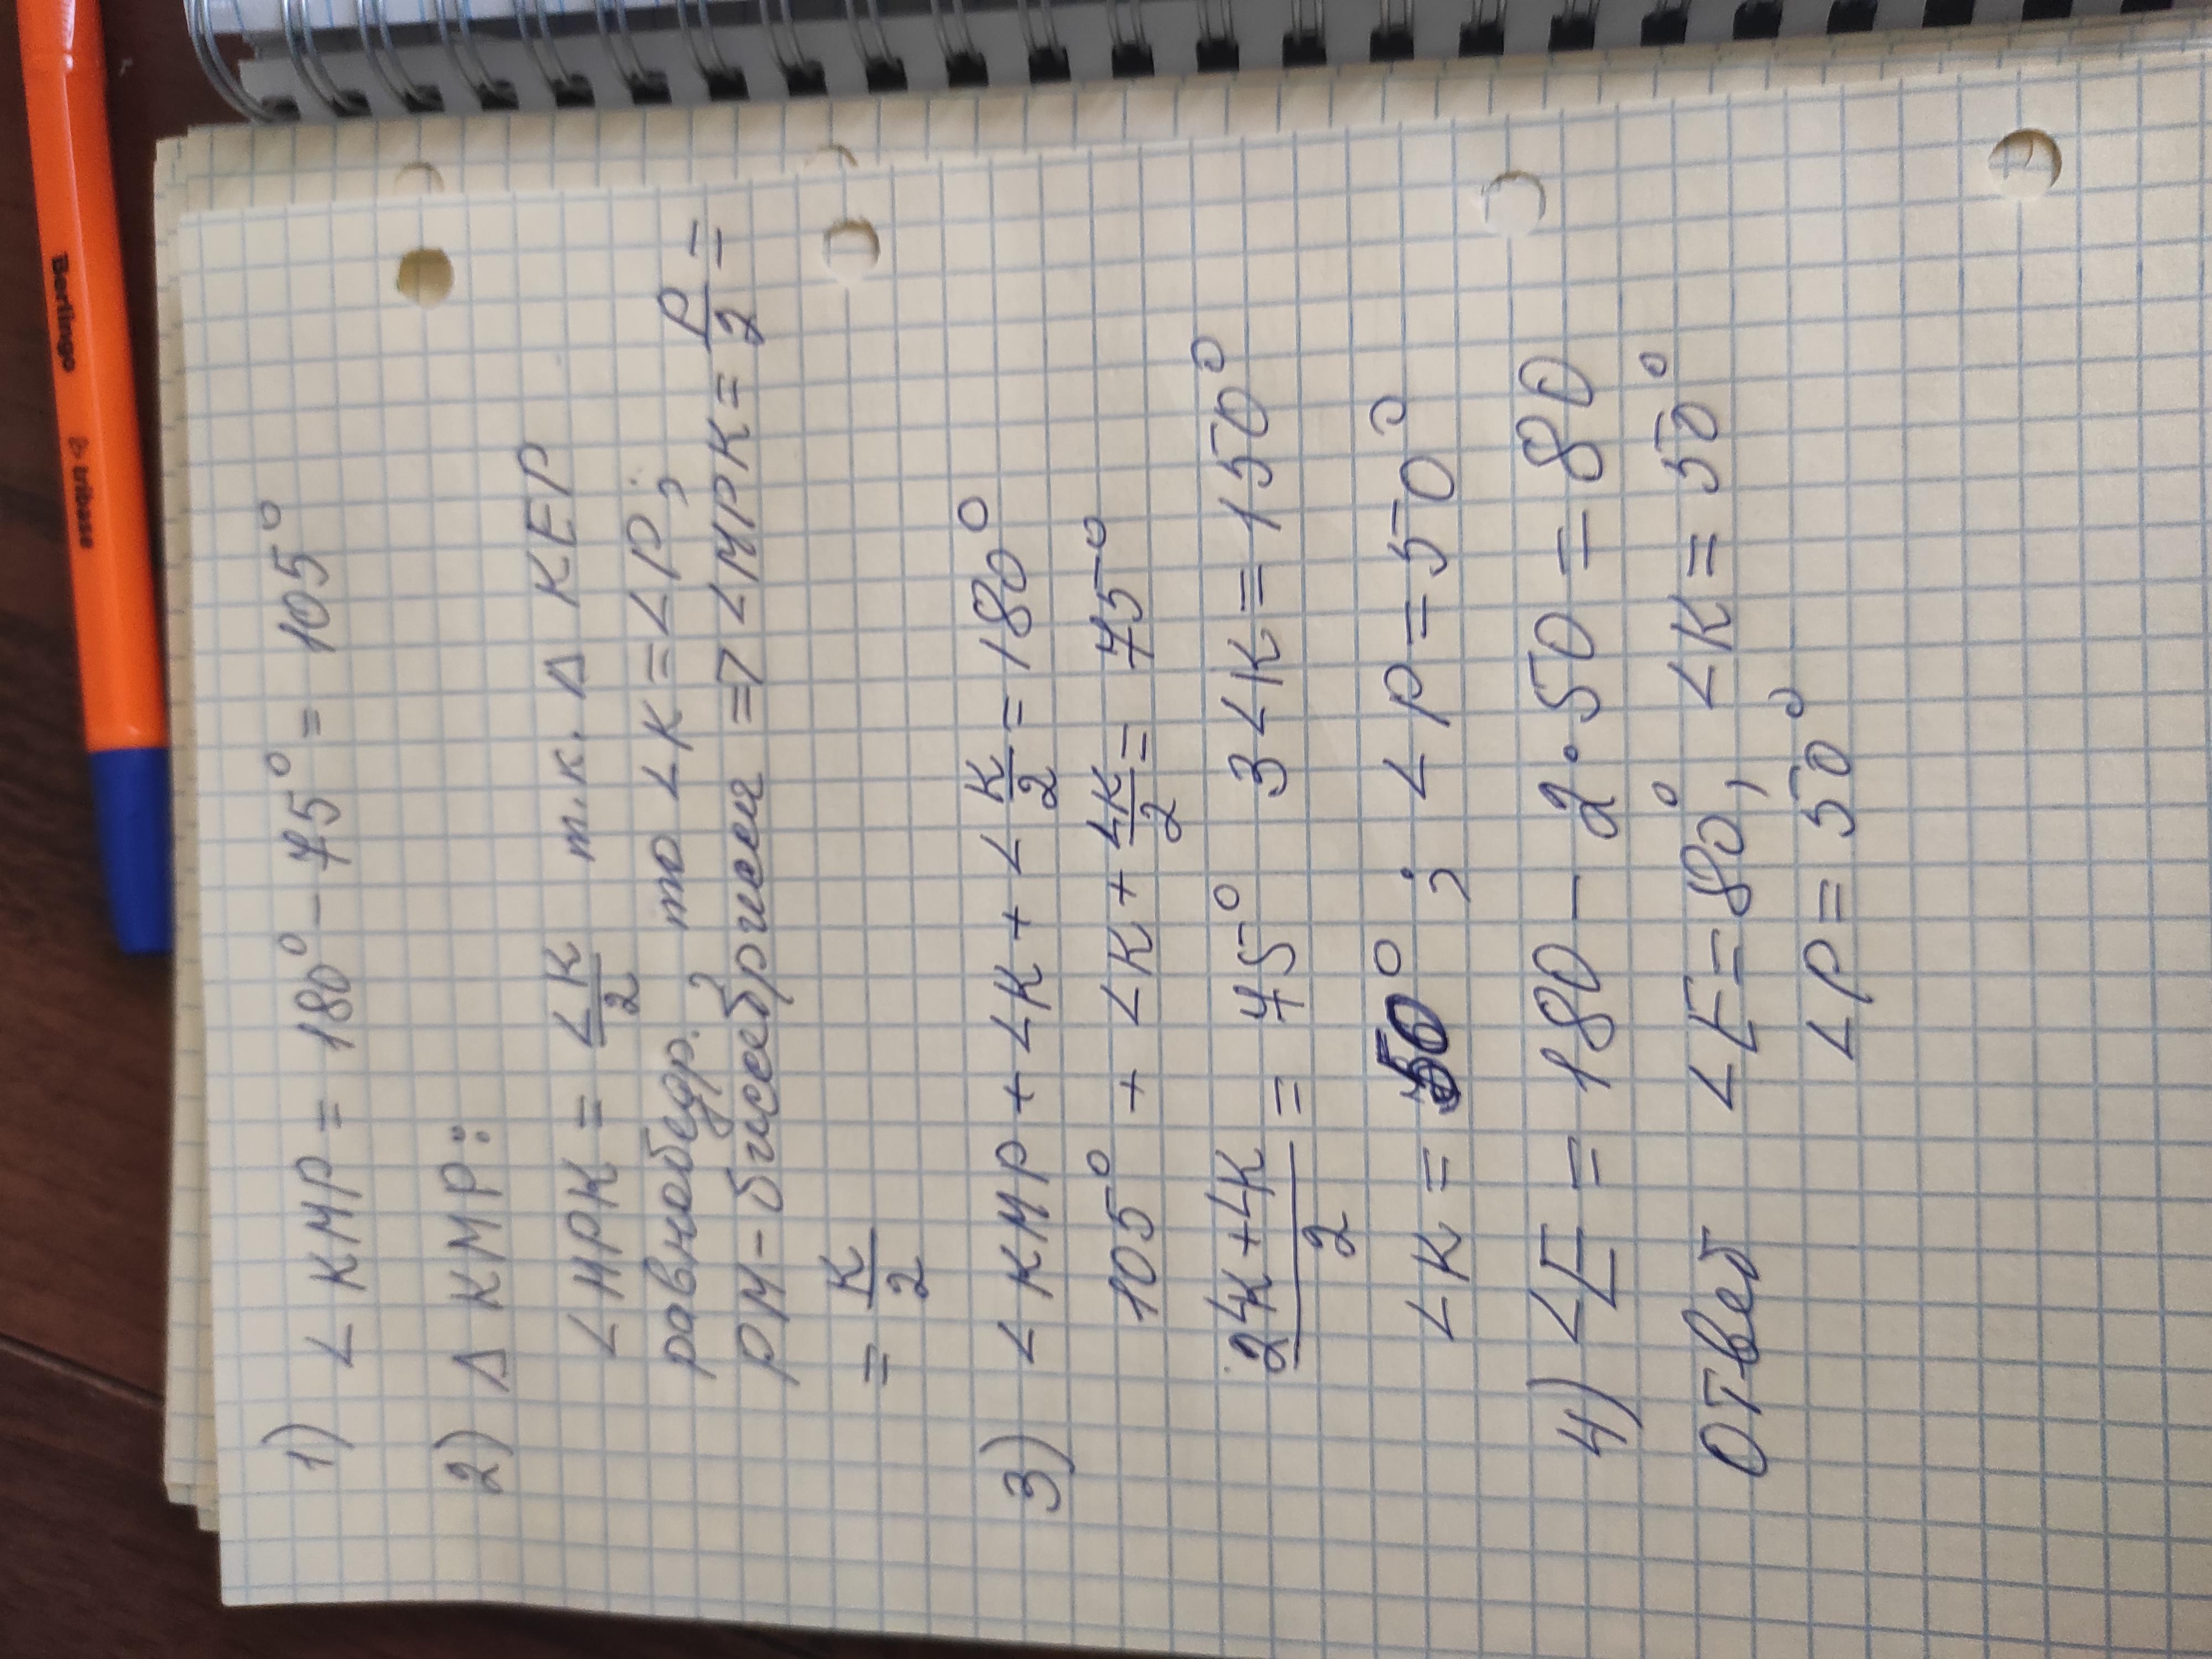 1) ∠KMP = 180° - 75° = 105°
2) Δ KMP:
∠MPK = ∠K/2 т.к. Δ KEP
равнобедр., то ∠K = ∠P;
PM - биссебриса => ∠MPK = P/2 =
= K/2
3) ∠KMP + ∠K + ∠ K/2 = 180°
105° + ∠K + ∠K/2 = 75°
2∠K+∠K/2 = 75° 3∠K = 150°
∠K = 50° ; ∠P = 50°
4) ∠E = 180 - 2·50 = 80
Ответ ∠E = 80°, ∠K = 50°
∠P = 50°
Berlingo
tribase